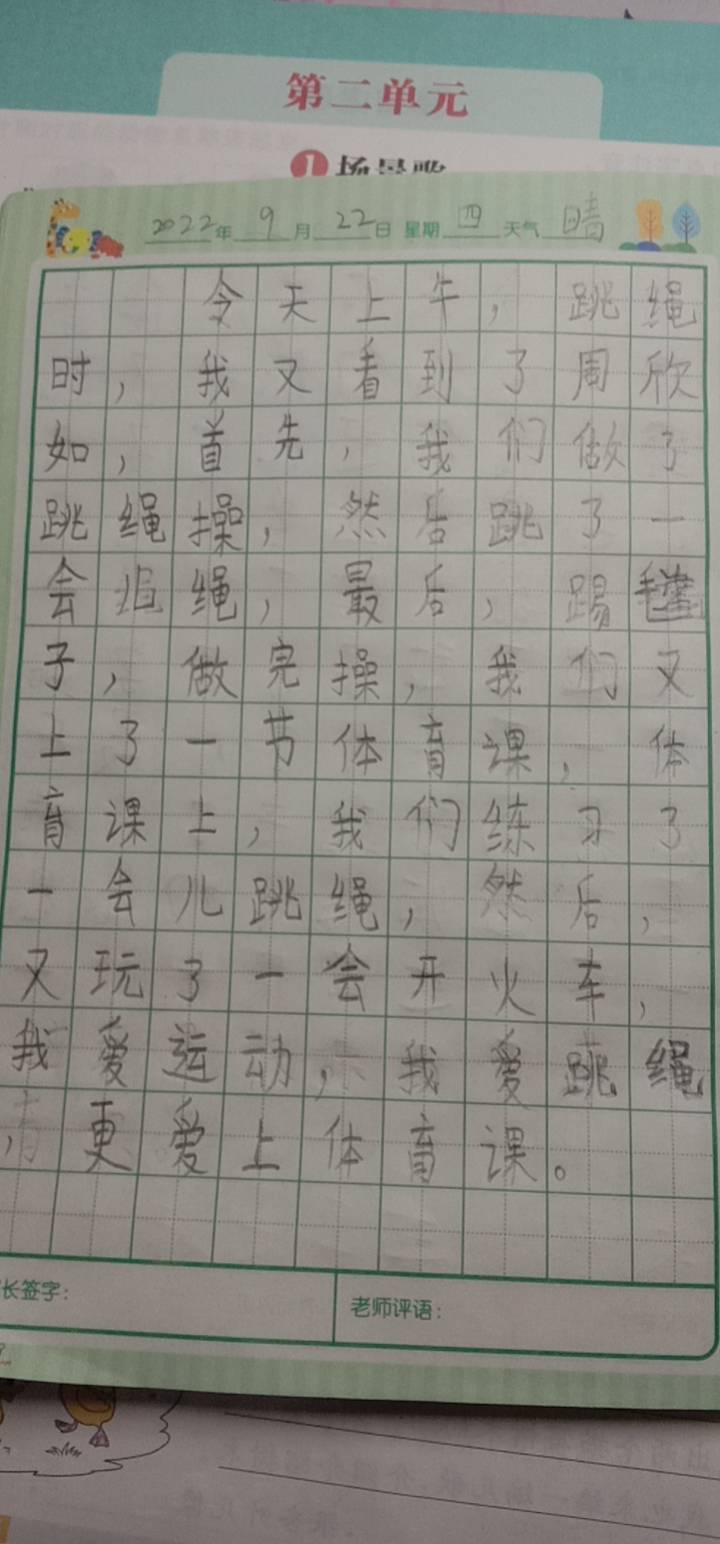 第二单元
1 场景歌
2022年 9月 22日 星期 四 天气 晴
今天上午，跳绳
时，我又看到了周欣
如，首先，我们做了
跳绳操，然后跳了一
会绳，最后，踢毽
子，做完操，我们又
上了一节体育课，体
育课上，我们练习了
一会儿跳绳，然后，
又玩了一会开火车，
我爱运动，我爱跳绳
，更爱上体育课。
长签字：
老师评语：